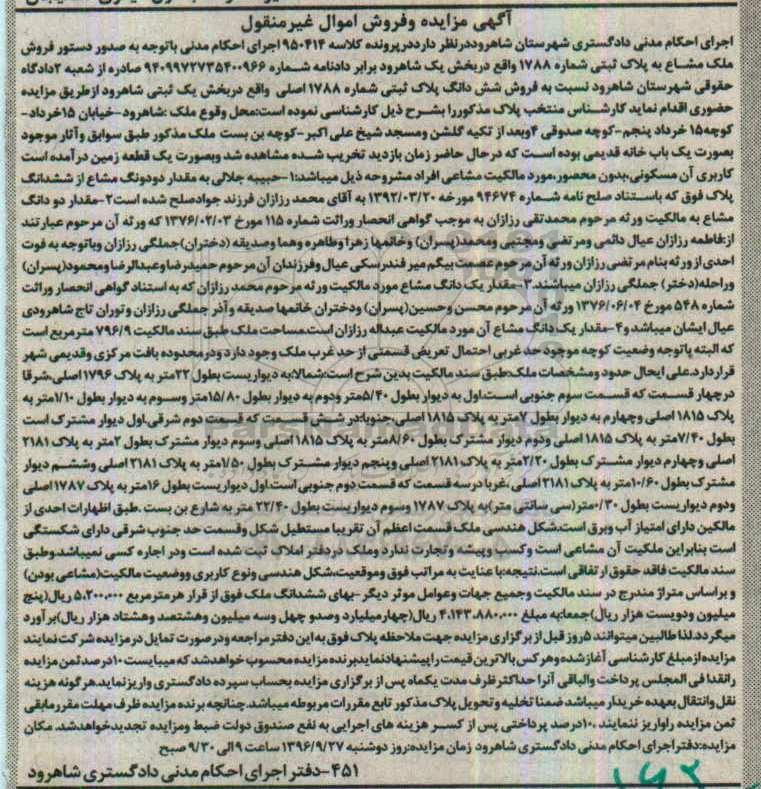 آگهی مزایده وفروش اموال غیرمنقول
اجرای احکام مدنی دادگستری شهرستان شاهروددرنظر دارددرپرونده کلاسه ۹۵۰۴۱۴ اجرای احکام مدنی باتوجه به صدور دستور فروش
ملک مشاع به پلاک ثبتی شماره ۱۷۸۸ واقع دربخش یک شاهرود برابر دادنامه شماره ۹۴۰۹۹۷۲۷۳۵۴۰۰۹۶۶ صادره از شعبه ۲دادگاه
حقوقی شهرستان شاهرود نسبت به فروش شش دانگ پلاک ثبتی شماره ۱۷۸۸ اصلی واقع دربخش یک ثبتی شاهرود ازطریق مزایده
حضوری اقدام نماید کارشناس منتخب پلاک مذکوررا بشرح ذیل کارشناسی نموده است:محل وقوع ملک :شاهرود-خیابان ۱۵خرداد-
کوچه۱۵ خرداد پنجم-کوچه صدوقی ۴وبعد از تکیه گلشن ومسجد شیخ علی اکبر-کوچه بن بست ملک مذکور طبق سوابق وآثار موجود
بصورت یک باب خانه قدیمی بوده است که درحال حاضر زمان بازدید تخریب شده مشاهده شد وبصورت یک قطعه زمین درآمده است
کاربری آن مسکونی،بدون محصور،مورد مالکیت مشاعی افراد مشروحه ذیل میباشد:۱-حبیبه جلالی به مقدار دودونگ مشاع از ششدانگ
پلاک فوق که باستناد صلح نامه شماره ۹۴۶۷۴ مورخه ۱۳۹۲/۰۳/۲۰ به آقای محمد رزازان فرزند جوادصلح شده است۲-مقدار دو دانگ
مشاع به مالکیت ورثه مرحوم محمدتقی رزازان به موجب گواهی انحصار وراثت شماره ۱۱۵ مورخ ۱۳۷۶/۰۲/۰۳ که ورثه آن مرحوم عبارتند
از:فاطمه رزازان عیال دائمی ومرتضی ومجتبی ومحمد(پسران) وخانمها زهرا وطاهره وهما وصدیقه (دختران)جملگی رزازان وباتوجه به فوت
احدی از ورثه بنام مرتضی رزازان ورثه آن مرحوم عصمت بیگم میر فندرسکی عیال وفرزندان آن مرحوم حمیدرضا وعبدالرضا ومحمود(پسران)
وراحله(دختر) جملگی رزازان میباشند.۳-مقدار یک دانگ مشاع مورد مالکیت ورثه مرحوم محمد رزازان که به استناد گواهی انحصار وراثت
شماره ۵۴۸ مورخ ۱۳۷۶/۰۶/۰۴ ورثه آن مرحوم محسن وحسین(پسران) ودختران خانمها صدیقه وآذر جملگی رزازان وتوران تاج شاهرودی
عیال ایشان میباشد و۴-مقدار یک دانگ مشاع آن مورد مالکیت عبداله رزازان است.مساحت ملک طبق سند مالکیت ۷۹۶/۹ مترمربع است
که البته باتوجه وضعیت کوچه موجود حد غربی احتمال تعریض قسمتی از حد غرب ملک وجود دارد ودرمحدوده بافت مرکزی وقدیمی شهر
قراردارد.علی ایحال حدود ومشخصات ملک:طبق سند مالکیت بدین شرح است:شمالا:به دیواریست بطول ۲۲متر به پلاک ۱۷۹۶ اصلی،شرقا
درچهار قسمت که قسمت سوم جنوبی است.اول به دیوار بطول ۵/۴۰متر ودوم به دیوار بطول ۱۵/۸۰متر وسوم به دیوار بطول ۱/۱۰متر به
پلاک ۱۸۱۵ اصلی وچهارم به دیوار بطول ۷متر به پلاک ۱۸۱۵ اصلی،جنوبا:در شش قسمت که قسمت دوم شرقی.اول دیوار مشترک است
بطول ۷/۴۰متر به پلاک ۱۸۱۵ اصلی ودوم دیوار مشترک بطول ۸/۶۰متر به پلاک ۱۸۱۵ اصلی وسوم دیوار مشترک بطول ۲متر به پلاک ۲۱۸۱
اصلی وچهارم دیوار مشترک بطول ۲/۲۰متر به پلاک ۲۱۸۱اصلی وپنجم دیوار مشترک بطول ۱/۵۰متر به پلاک ۲۱۸۱ اصلی وششم دیوار
مشترک بطول ۱۰/۶۰متر به پلاک ۲۱۸۱ اصلی ،غربا درسه قسمت که قسمت دوم جنوبی است.اول دیواریست بطول ۱۶متر به پلاک ۱۷۸۷ اصلی
ودوم دیواریست بطول ۰/۳۰متر(سی سانتی متر)به پلاک ۱۷۸۷ وسوم دیواریست بطول ۲۲/۴۰ متر به شارع بن بست .طبق اظهارات احدی از
مالکین دارای امتیاز آب وبرق است.شکل هندسی ملک قسمت اعظم آن تقریبا مستطیل شکل وقسمت حد جنوب شرقی دارای شکستگی
است بنابراین ملکیت آن مشاعی است وکسب وپیشه وتجارت ندارد وملک دردفتر املاک ثبت شده است ودر اجاره کسی نمیباشد.وطبق
سند مالکیت فاقد حقوق ارتفاقی است.نتیجه:با عنایت به مراتب فوق وموقعیت،شکل هندسی ونوع کاربری ووضعیت مالکیت(مشاعی بودن)
و براساس متراژ مندرج در سند مالکیت وجمیع جهات وعوامل موثر دیگر-بهای ششدانگ ملک فوق از قرار هرمترمربع ۵.۲۰۰.۰۰۰ ریال(پنج
میلیون ودویست هزار ریال)جمعا:به مبلغ ۴.۱۴۳.۸۸۰.۰۰۰ ریال(چهارمیلیارد وصدو چهل وسه میلیون وهشتصد وهشتاد هزار ریال)برآورد
میگردد.لذا طالبین میتوانند ۵روز قبل از برگزاری مزایده جهت ملاحظه پلاک فوق به این دفتر مراجعه ودرصورت تمایل درمزایده شرکت نمایند
مزایده ازمبلغ کارشناسی آغاز شده وهر کس بالاترین قیمت را پیشنهادنمایدبرنده مزایده محسوب خواهدشد که میبایست ۱۰درصدثمن مزایده
رانقدا فی المجلس پرداخت والباقی آنرا حداکثر ظرف مدت یکماه پس از برگزاری مزایده بحساب سپرده دادگستری واریزنماید.هر گونه هزینه
نقل وانتقال بعهده خریدار میباشد ضمنا تخلیه وتحویل پلاک مذکور تابع مقررات مربوطه میباشد.چنانچه برنده مزایده ظرف مهلت مقررمابقی
ثمن مزایده راواریز ننمایند ،۱۰درصد پرداختی پس از کسر هزینه های اجرایی به نفع صندوق دولت ضبط ومزایده تجدیدخواهدشد. مکان
مزایده:دفتر اجرای احکام مدنی دادگستری شاهرود زمان مزایده:روز دوشنبه ۱۳۹۶/۹/۲۷ ساعت ۹الی ۹/۳۰ صبح
۴۵۱-دفتر اجرای احکام مدنی دادگستری شاهرود